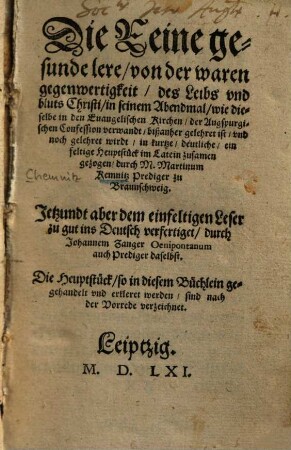 Die Reine ge-
sunde lere / von der waren
gegenwertigkeit / des Leibs vnd
bluts Christi / in seinem Abendmal / wie die-
selbe in den Euangelischen Kirchen / der Augspurgi-
schen Confession verwandt / bißanher gelehret ist / vnd
noch gelehret wirdt / in kurtze / deutliche / ein
feltige Heuptstück im Latein zusamen
gezogen / durch M. Martinum
Chemnitz Kemnitz Prediger zu
Braunschweig.
Jetzundt aber dem einfeltigen Leser
zu gut ins Deutsch verfertiget / durch
Johannem Zanger Oenipontanum
auch Prediger daselbst.
Die Heuptstück / so in diesem Büchlein ge-
gehandelt vnd erkleret werden / sind nach
der Vorrede verzeichnet.
Leiptzig.
M. D. LXI.